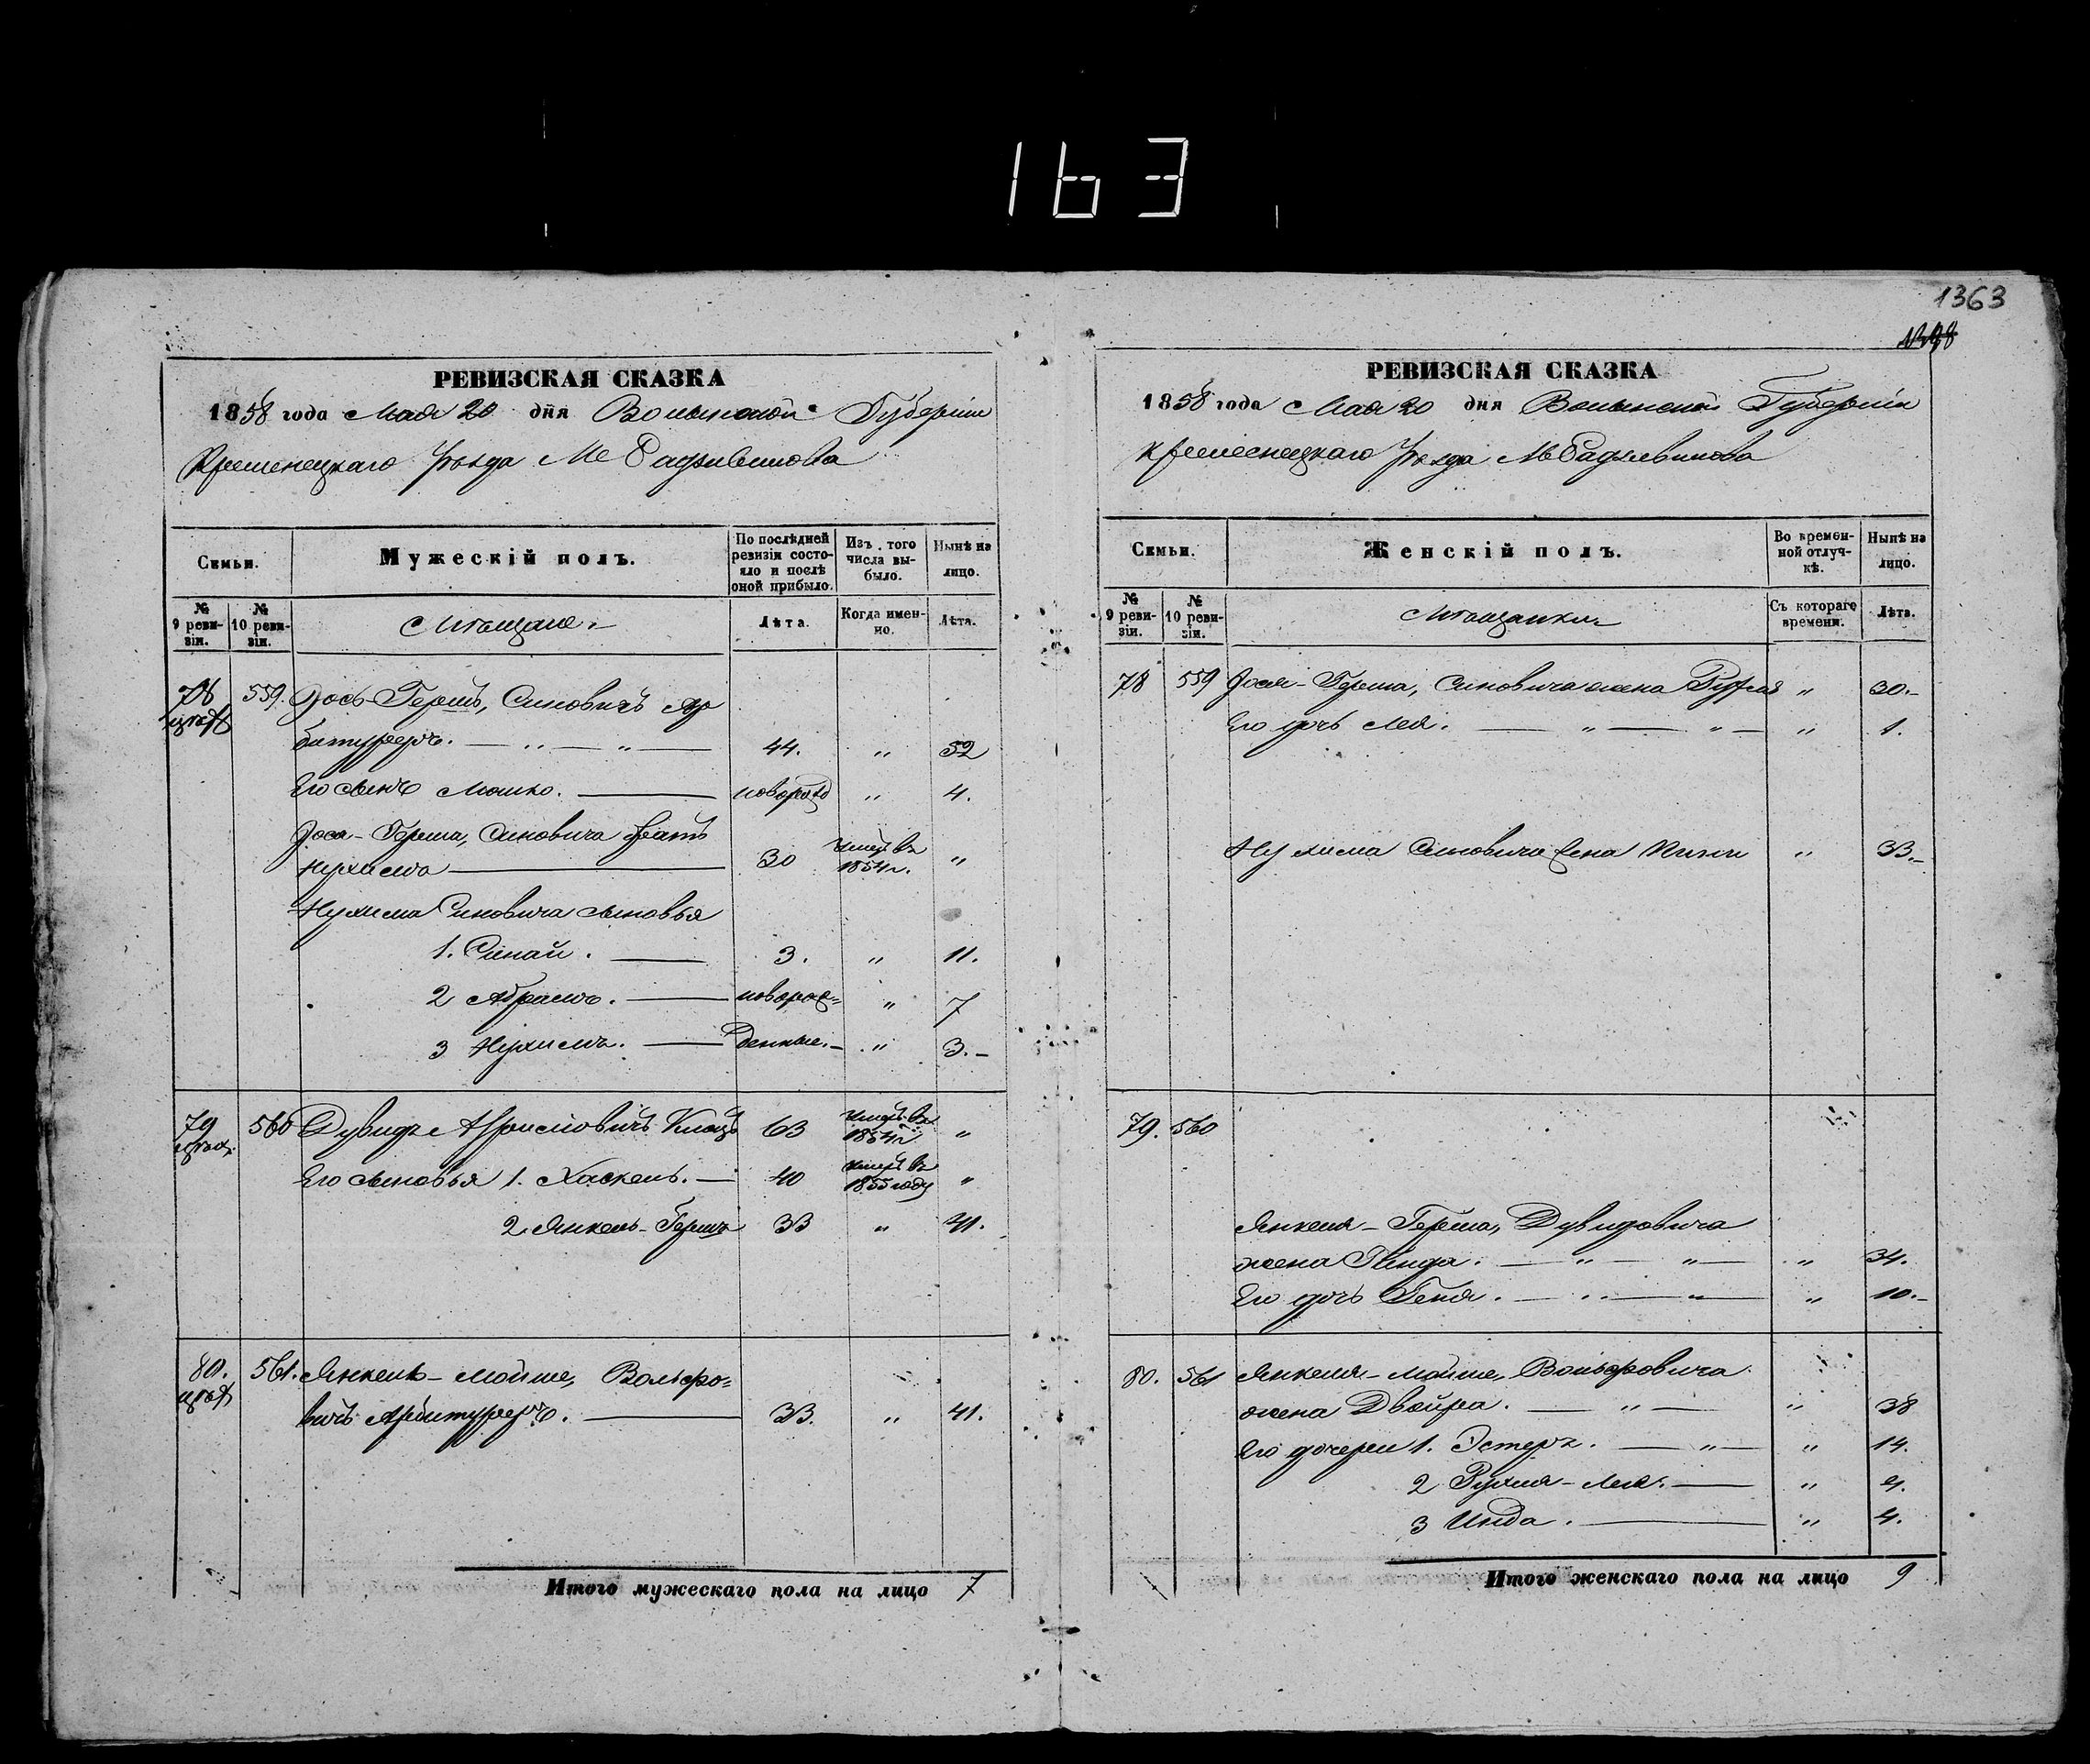 163
1363
РЕВИЗСКАЯ СКАЗКА
1858 года Мая 20 дня Волынской Губерніи
Кременецкаго Уѣзда М Радзивилова
Семьи.
Мужескій полъ.
По послѣдней ревизіи состояло и послѣ оной прибыло.
Изъ того числа выбыло.
Нынѣ на лицо.
№ 9 ревизіи.
№ 10 ревизіи.
Мѣщане
Лѣта.
Когда именно.
Лѣта.
78 559. Іось-Гершъ, Синовичъ Ар
битурреръ. — „ — „ — 44. „ 52
Его сынъ Мошко. — новорожд „ 4.
Іося-Герша, Синовича братъ
Нухимъ — 30 умеръ въ 1854 г. „
Нухима Синовича сыновья
1. Синай. — 3. „ 11.
2 Абрамъ. — новорож= „ 7
3 Нухимъ. — денные. — „ 3. –
79 560 Дувидъ Абрамовичъ 63 умеръ въ 1854 г „
Его сыновья 1. Хаскель. — 40 умеръ въ 1855 году „
2. Янкель-Гершъ 33 „ 41.
80. 561. Янкель-Мойше, Вольфо=
вичъ Арбитурреръ. — 33. „ 41.
Итого мужескаго пола на лицо 7
РЕВИЗСКАЯ СКАЗКА
1858 года Мая 20 дня Волынской Губерніи
Кременецкаго Уѣзда М Радзивилова
Семьи.
Женскій полъ.
Во временной отлучкѣ.
Нынѣ на лицо.
№ 9 ревизіи.
№ 10 ревизіи.
Мѣщанки
Съ котораго времени.
Лѣта.
78 559 Іося-Герша, Синовича жена Рухля „ 30. –
Его дочь Лея. — „ — „ — „ 1.
Нухима Синовича жена „ 33. –
79. 560
Янкеля-Герша, Дувидовича
жена Гинда. — „ — „ — „ 34.
Его дочь Геня. — „ — „ — „ 10. –
80. 561 Янкеля-Мойше, Вольфовича
жена Двойра. — „ — „ 38
Его дочери 1. Эстеръ. — „ — „ 14.
2 Рухля-Лея. — „ 9.
3 Инда. — „ 4.
Итого женскаго пола на лицо 9